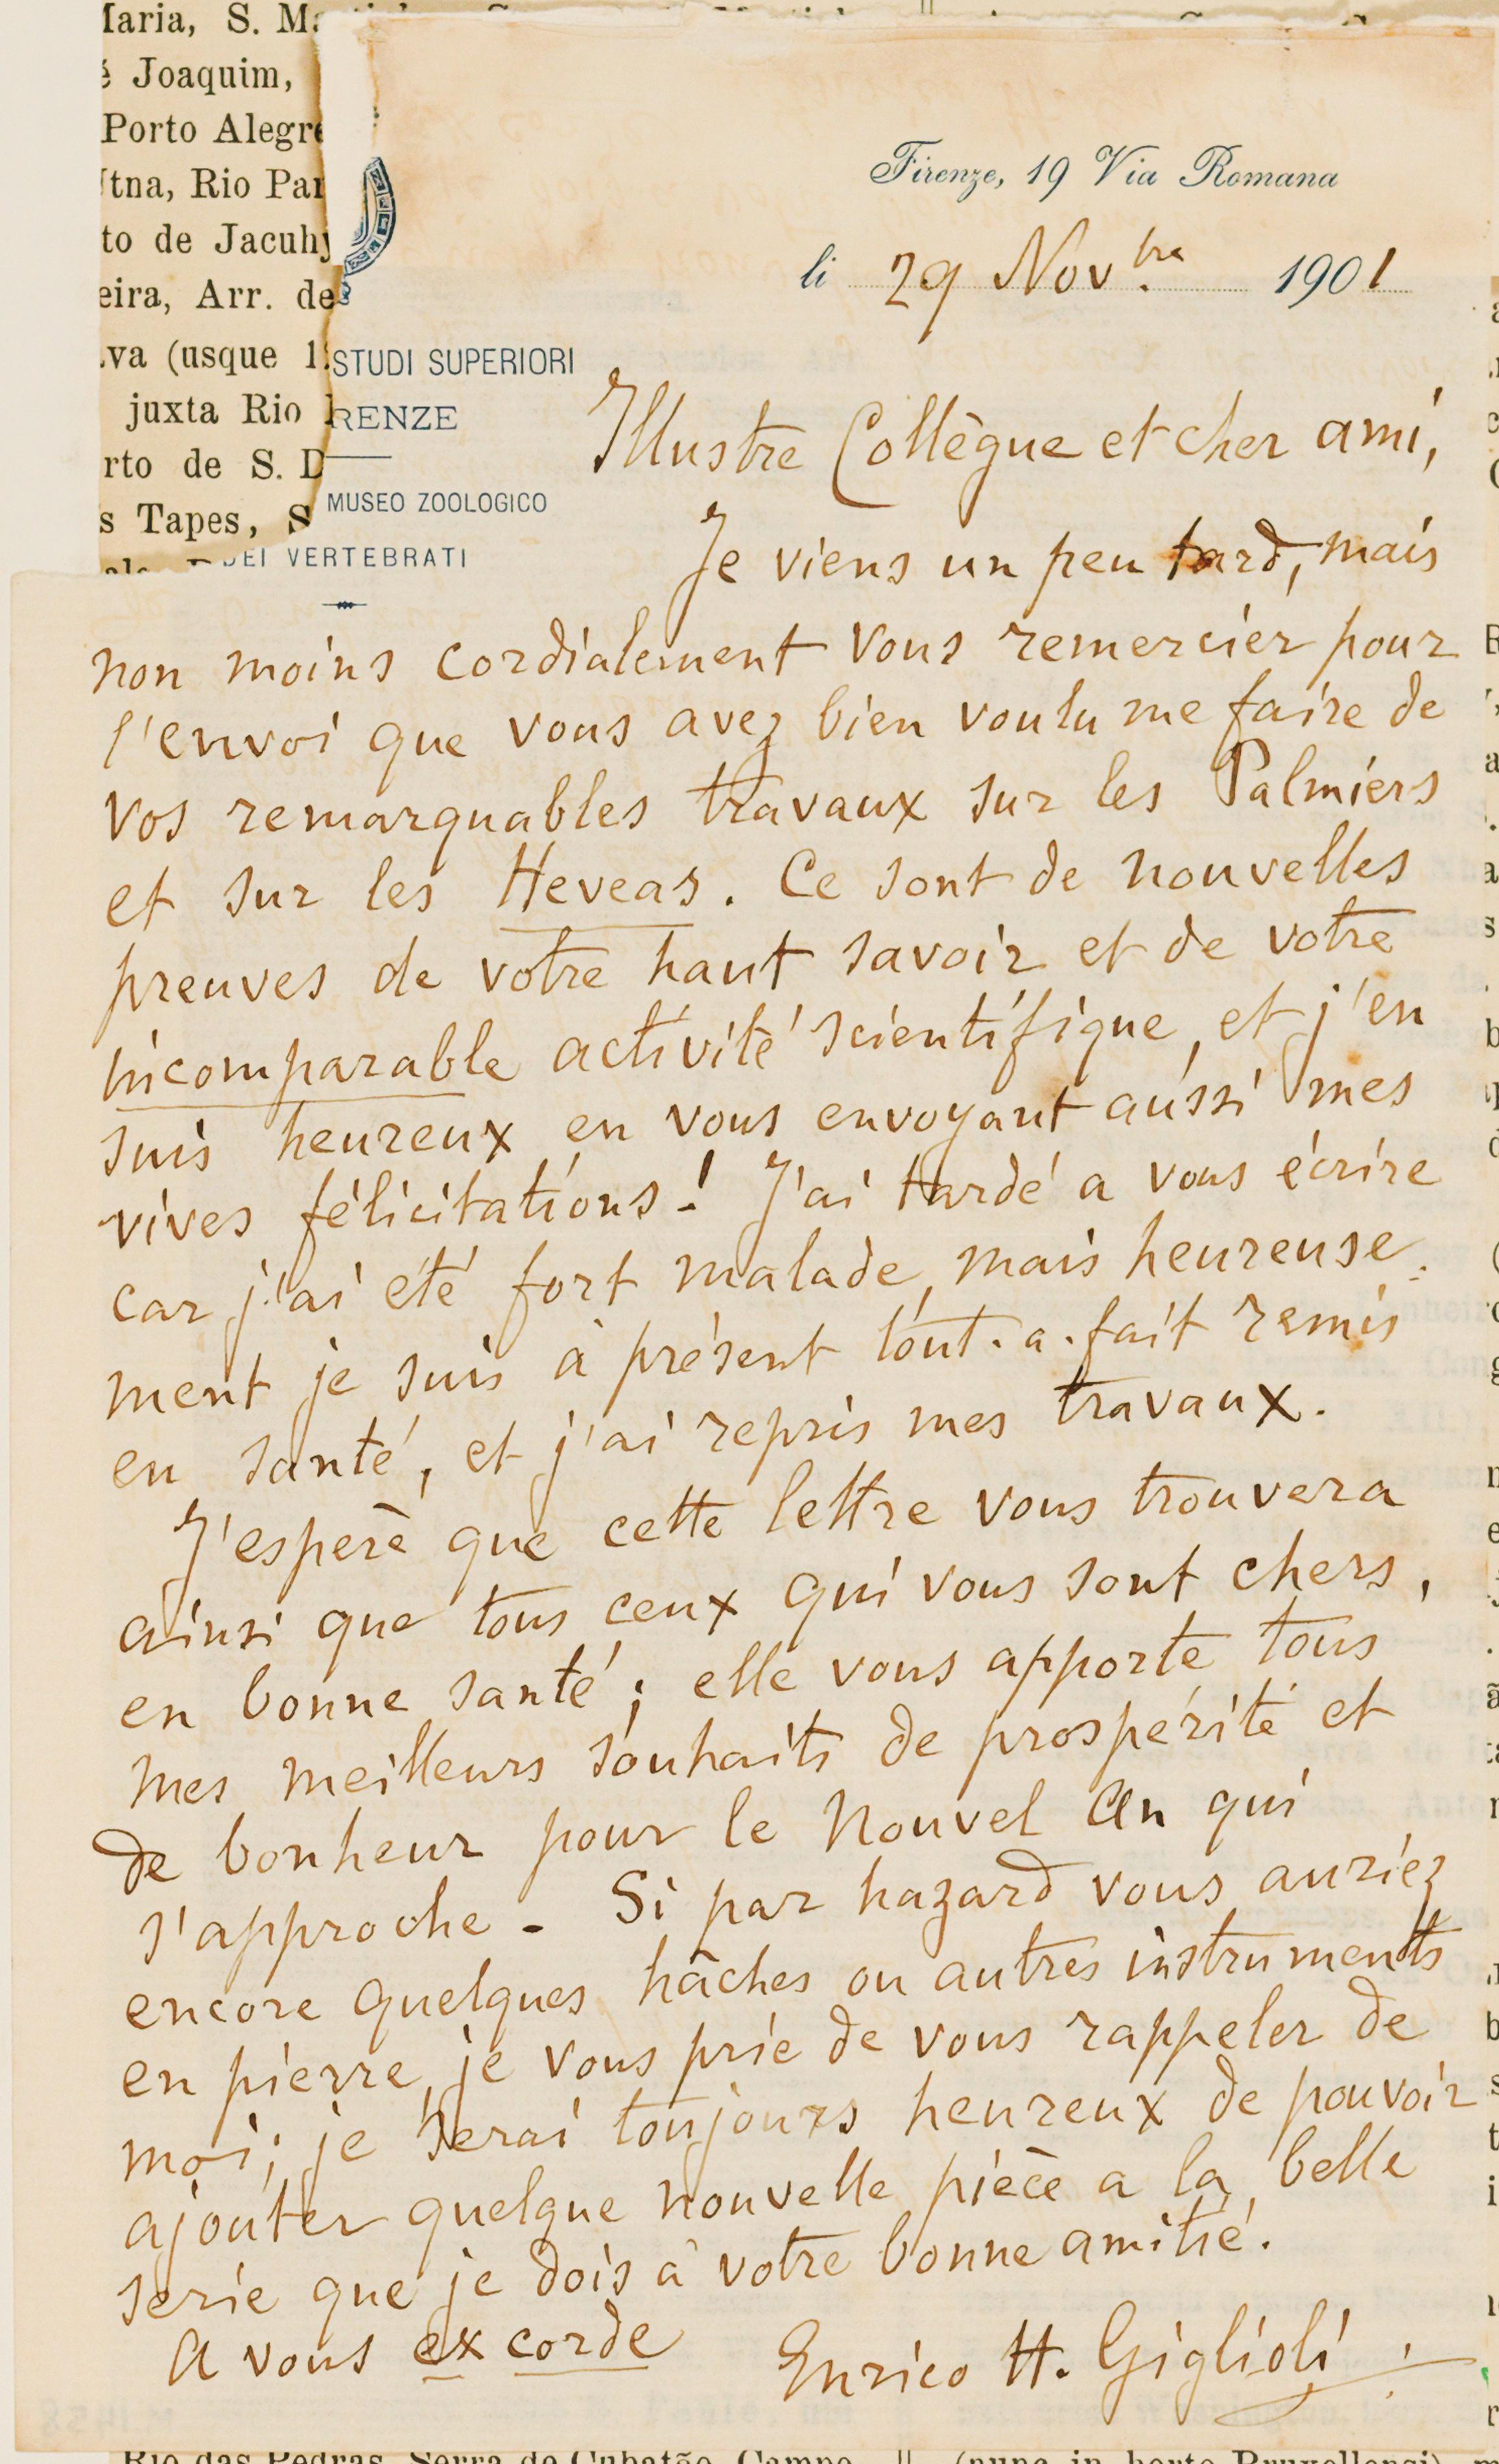 Maria, S. 
é Joaquim,
Porto Alegre
Rio Par
to de Jacuhy
eira, Arr. de
va (usque
juxta Rio
rto de S.
s Tapes, S
Firenze, 19 Via Romana
li 29 Novbre 1901
STUDI SUPERIORI
RENZE
MUSEO ZOOLOGICO
DEI VERTEBRATI
Illustre Collègue et cher ami,
Je viens un peu tard, mais
non moins cordialement vous remercier pour
l'envoi que vous avez bien voulu me faire de
vos remarquables travaux sur les Palmiers
et sur les Heveas. Ce sont de nouvelles
preuves de votre haut savoir et de votre
incomparable activité scientifique, et j'en
suis heureux en vous envoyant aussi mes
vives félicitations! J'ai tardé a vous écrire
car j'ai été fort malade, mais heureuse=
ment je suis à présent tout.a.fait remis
en santé, et j'ai repris mes travaux.
J'esperè que cette lettre vous trouvera
ainsi que tous ceux qui vous sont chers,
en bonne santé; elle vous apporte tous
mes meilleurs souhaits de prospérité et
de bonheur pour le Nouvel An qui
s'approche - Si par hazard vous auriez
encore quelques hâches ou autres instruments
en pierre, je vous prie de vous rappeler de
moi; je serai toujours heureux de pouvoir
ajouter quelque nouvelle pièce a la belle
serie que je dois à votre bonne amitié.
A vous ex corde Enrico H. Giglioli
Rio das Pedras, Serra do Cubatão, Campo (nunc in horto Bruxellensi)